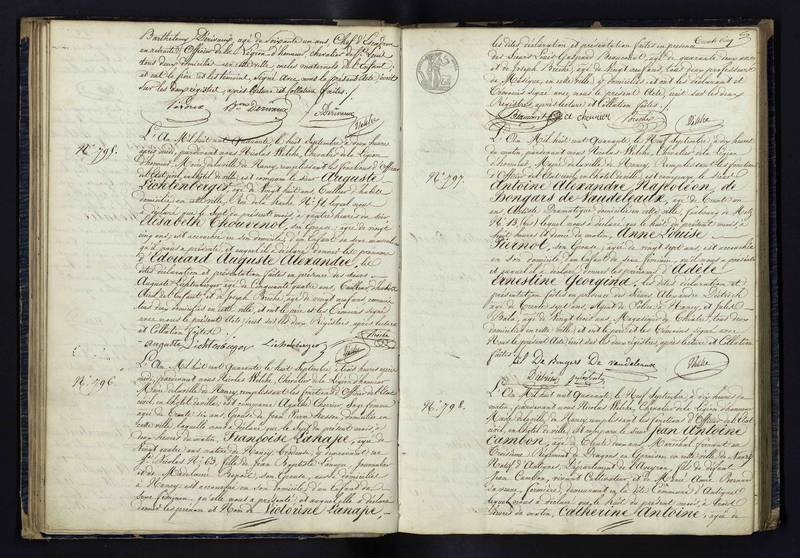 Barthélemy Derivaux, âgé de Soixante un ans, Chef d'Escadron
en retraite, Officier de la Légion d'honneur, chevalier de St Louis
tous deux domiciliés en cette ville, oncles maternels de l'Enfant
et ont le père et les témoins, signé avec nous le présent acte, inscrit
sur les deux registres, après lecture et collation faites./.
Bon Derivaux
Derivaux
Welche
N° 795.
L'An Mil huit cent Quarante, le huit Septembre, à deux heures
après midi, pardevant nous Nicolas Welche, Chevalier de la Légion
d'honneur, Maire de la ville de Nancy, remplissant les fonctions d'Officier
de l'Etat civil, en l'hôtel de ville, est comparu le sieur Auguste
Lichtenberger, âgé de Vingt huit ans, Tailleur d'habits
domicilié en cette ville, Rue de la Hache N° 91 lequel nous
a déclaré que le Sept du présent mois, à quatre heures du soir
Elisabeth Chouvenot, son Epouse, âgée de vingt
cinq ans, est accouchée en son domicile, d'un Enfant du sexe masculin
qu'il nous a présenté, et auquel il a déclaré donner les prénoms
d'Edouard Auguste Alexandre, les
dites déclaration et présentation faites en présence des sieurs
Auguste Lichtenberger, âgé de Cinquante quatre ans, Tailleur d'habits
Aïeul de l'Enfant et de Joseph Broche, âgé de vingt neuf ans
tous deux domiciliés en cette ville, et ont le père et les témoins signé
avec nous le présent acte, inscrit sur les deux Registres, après lecture
et Collation faites./.
auguste Lichtenberger Lichtenberger
Broche
Welche
N° 796
L'An Mil huit cent Quarante, le huit Septembre, à trois heures après
midi, pardevant nous Nicolas Welche, Chevalier de la Légion d'honneur
Maire de la ville de Nancy, remplissant les fonctions d'Officier de l'Etat
civil, en l'hôtel de ville, est comparue Agathe Sage femme
âgée de Trente six ans, Epouse de Jean domiciliée en
cette ville, laquelle nous a déclaré que le Sept du présent mois, à
deux heures du matin, Françoise Lahape, âgée de
Vingt quatre ans, native de Nancy, y demeurant, rue
St Nicolas N° 63, fille de Jean Baptiste Lahape, Journalier
et de Madelaine son Epouse, aussi domiciliés
à Nancy, est accouchée en son domicile, d'un Enfant du
Sexe féminin, qu'elle nous a présenté et auquel elle a déclaré
donner les prénom et Nom de Victorine Lahape,
Trente Cinq
les dites déclaration et présentation faites en présence
des Sieurs Louis Beaucourt, âgé de quarante deux ans
et de Joseph Broche, âgé de Vingt neuf ans, tous deux professeurs
de Musique, en cette ville, y domiciliés, et ont les déclarant et
témoins signé avec nous le présent acte, inscrit sur les deux
Registres, après lecture et Collation faites./.
Beaucourt
Broche
Welche
N° 797.
L'An Mil huit cent Quarante, le Neuf Septembre, à dix heures
du matin, pardevant nous Nicolas Welche, Chevalier de la Légion
d'honneur, Maire de la ville de Nancy, remplissant les fonctions
d'Officier de l'Etat civil, en l'hôtel de ville, est comparu le sieur
Antoine Alexandre Napoléon, de
Bongars de Vaudeleaux, âgé de Trente un
ans, Artiste Dramatique, domicilié en cette ville, faubourg de Metz
N° 13, lequel nous a déclaré que le huit du présent mois, à
huit heures et demie du soir, Anne Louise
Pernot, son Epouse, âgée de vingt sept ans, est accouchée
en son domicile d'un Enfant du Sexe féminin, qu'il nous a présenté
et auquel il a déclaré donner les prénoms d'Adèle
Ernestine Georgina, les dites déclaration et
présentation faites en présence des Sieurs Alexandre
âgé de Trente sept ans, de Police, à Nancy, et
âgé de Vingt huit ans, Machiniste du Théâtre, tous deux
domiciliés en cette ville, et ont le père et les témoins signé avec
nous le présent Acte, inscrit sur les deux registres, après lecture et Collation
faites./.
De Bongars De Vaudeleaux
Welche
N° 798.
L'An Mil huit cent Quarante, le Neuf Septembre, à dix heures du
matin, pardevant nous Nicolas Welche, Chevalier de la Légion d'honneur
Maire de la ville de Nancy, remplissant les fonctions d'Officier de l'Etat
civil, en l'hôtel de ville, est comparu le sieur Jean Antoine
Cambon, âgé de Trente ans, Maréchal ferrant au
Troisième Régiment de Dragons en Garnison en cette ville de Nancy
Natif d'Aubignes, Département de l'Aveyron, fils de défunt
Jean Cambon, vivant Cultivateur, et de Marie Anne
sa veuve, fermière, demeurant en la dite Commune d'Aubignes
lequel nous a déclaré que le huit du présent mois, à
heures du matin, Catherine Antoine, âgée de